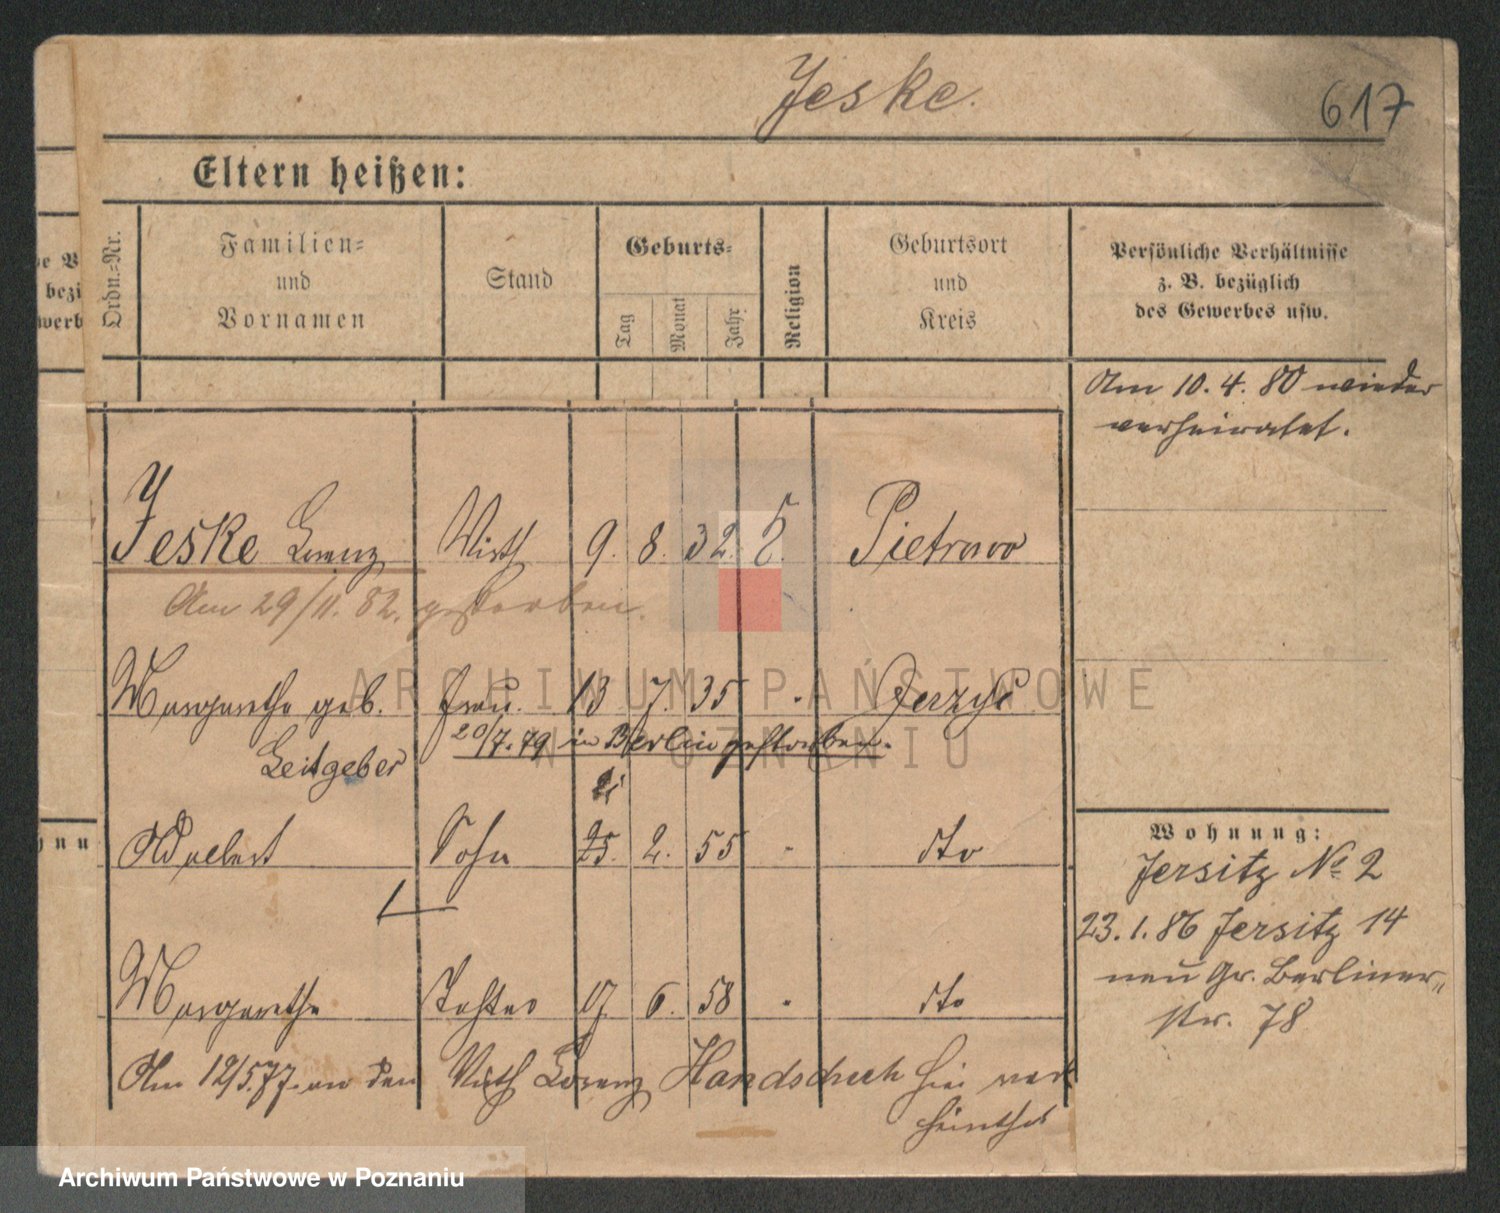 Jeske.
617
Eltern heißen:
Ordn.=Nr.
Familien=
und
Vornamen
Stand
Geburts=
Tag
Monat
Jahr
Religion
Geburtsort
und
Kreis
Persönliche Verhältnisse
z. B. bezüglich
des Gewerbes usw.
Am 10. 4. 80 wieder
verheiratet.
Jeske Lorenz Wirth 9. 8. 32. Pietrowo
Am 29/11. 82. gestorben.
Margarethe geb. Frau. 13 7. 35 Jerzyc
Leitgeber
20/7. 79 in Berlin gestorben.
Adalbert Sohn 25. 2. 55 - dto
Margarethe Tochter 17. 6. 58 - dto
Am 12/5.77. an den Wirth Lorenz Handschuh hier ver
heirathet
Wohnung:
Jersitz No 2
23. 1. 86 Jersitz 14
neu Gr. Berliner„
str. 78
ARCHIWUM PAŃSTWOWE
W POZNANIU
Archiwum Państwowe w Poznaniu